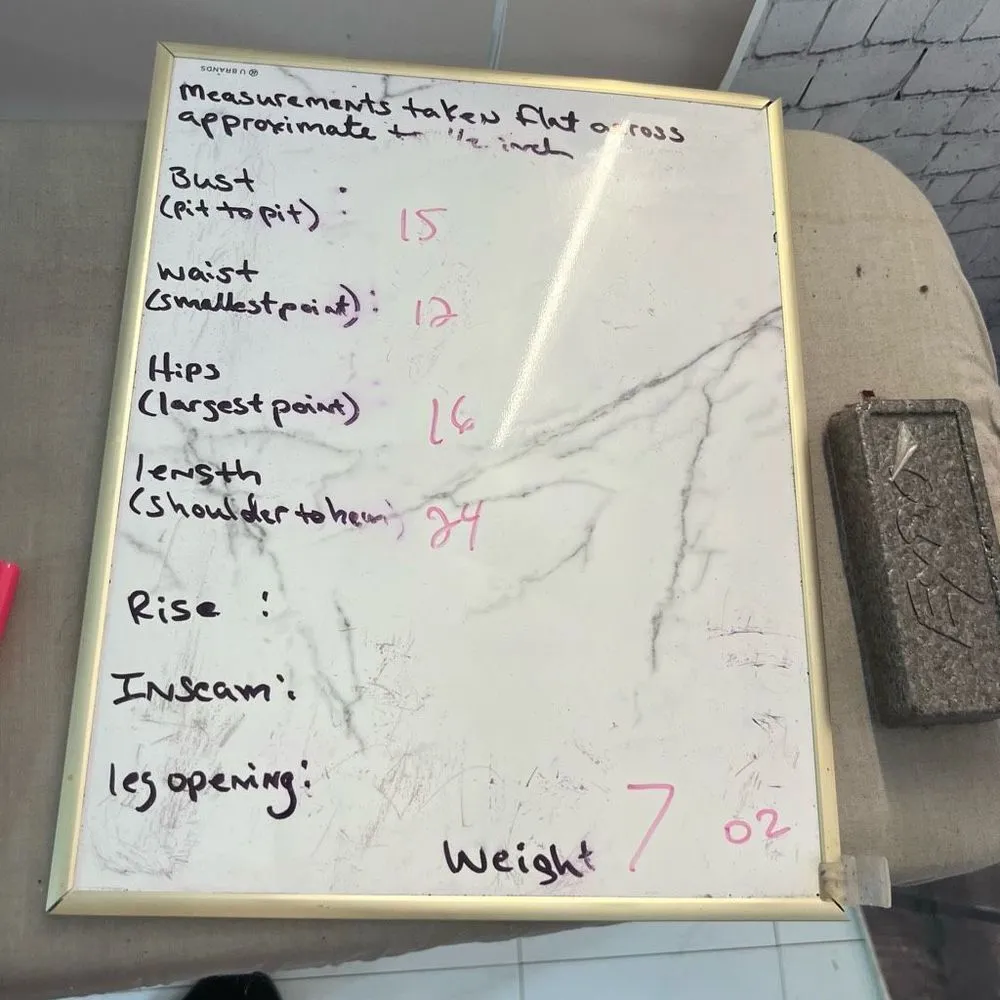 U BRANDS
Measurements taken flat across
approximate to 1/2 inch
Bust
(pit to pit) : 15
waist
(smallest point) : 12
Hips
(largest point) 16
length
(shoulder to hem) 24
Rise :
Inseam :
leg opening :
Weight 7 oz
EXPO